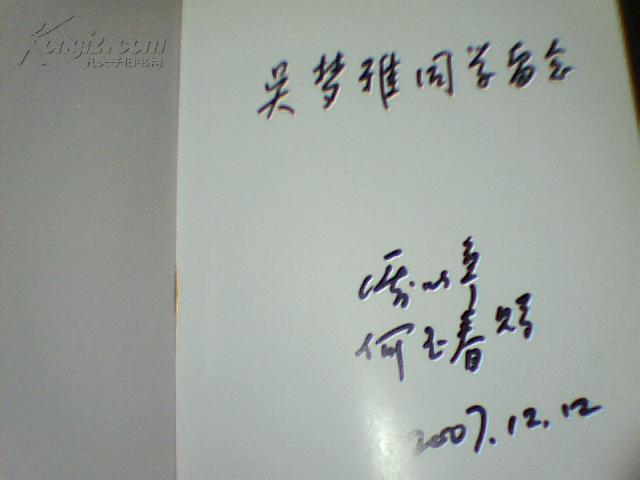 Kongfz.com
孔夫子旧书网
吴梦雅同学留念
何玉春
2007.12.12